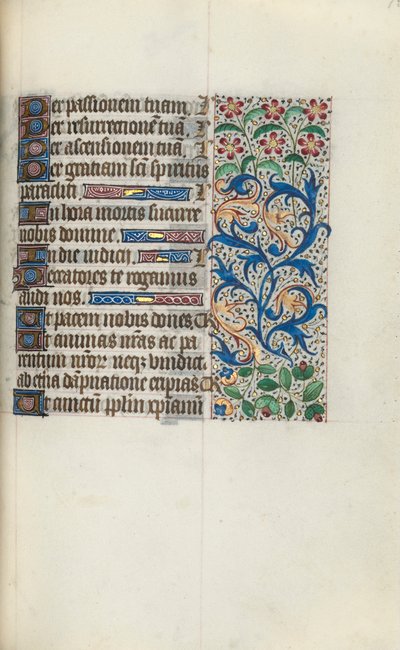 Per passionem tuam
Per resurrectionē tuā.
Per ascensionem tuā.
Per gratiam sc̄i spiritus
paracliti.
In hora mortis succurre
nobis domine.
In die iudicii.
Peccatores te rogamus
audi nos.
Ut pacem nobis dones.
Ut animas nr̄as ac pa
rentum nr̄or neqz
ab eterna dāpnatione eripias
Ut cunctū pplm xpianū